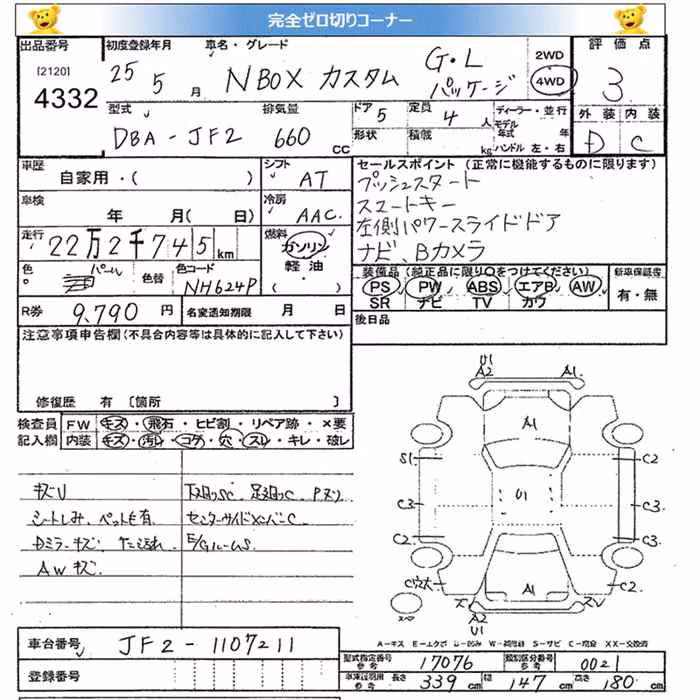 完全ゼロ切りコーナー
出品番号 初度登録年月 車名・グレード 評価点
[2120] 4332 25 5月 N BOX カスタム G・L パッケージ 2WD 4WD 3
型式 排気量 ドア 5 定員 4人 ディーラー・並行 外装 内装
DBA-JF2 660 CC 形状 積載 kg モデル年式 年 ハンドル 左・右 D C
車歴 シフト セールスポイント (正常に機能するものに限ります)
自家用・( ) AT プッシュスタート
車検 冷房 スマートキー
年 月( 日) AAC. 左側パワースライドドア
走行 22万2千745km 燃料 ガソリン ナビ、Bカメラ
軽油・( )
色 パール 色替 色コード NH624P 装備品(純正品に限り○をつけてください) 新車保証書
PS PW ABS エアB AW 有・無
SR ナビ TV カワ
R券 9,790円 名変通知期限 月 日 後日品
注意事項申告欄(不具合内容等は具体的に記入して下さい)
修復歴 有 [箇所 ]
検査員 FW キズ・飛石・ヒビ割・リペア跡・×要
記入欄 内装 キズ・汚れ・コゲ・穴・スレ・キレ・破レ
キズU 下回りSC、足回りC、Pヌリ
シートしみ、ペット毛有 センターサイドメンバーC
Dミラーキズ E/GルームS
AWキズ
U1
A2 A1
A1
S1 C2
U1
C3 C3
C2 C3
C穴大 C2
A1
A2
U1
A-キズ E-エクボ U-凹み W-補修跡 S-サビ C-腐食 XX-交換済
車台番号 JF2-1107211
型式指定番号 参考 17076 類別区分番号 参考 0021
登録番号
車輌登録用 参考 長さ 339cm 幅 147cm 高さ 180cm